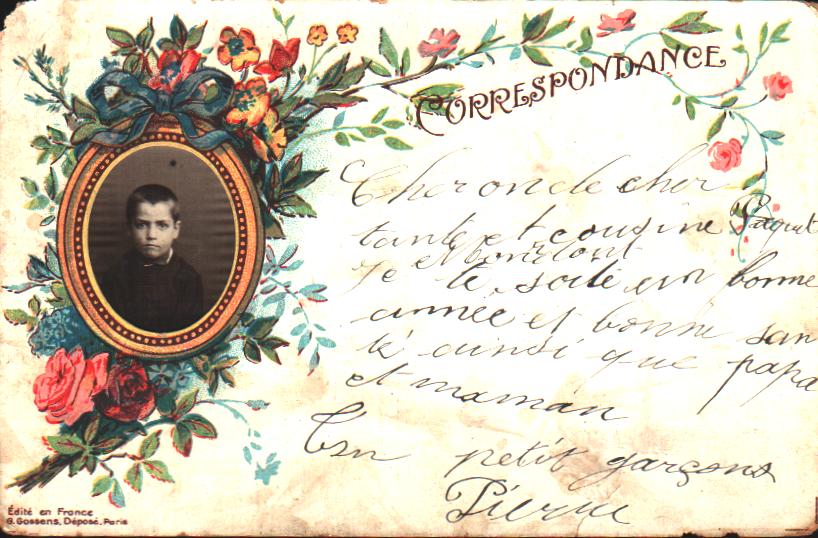 CORRESPONDANCE
Cher oncle cher
tante et cousine Paquit
et bonjour
Je te soite un bonne
année et bonne san
té ainsi que papa
et maman
petit garçons
Pierre
Édité en France
G. Gossens, Déposé, Paris